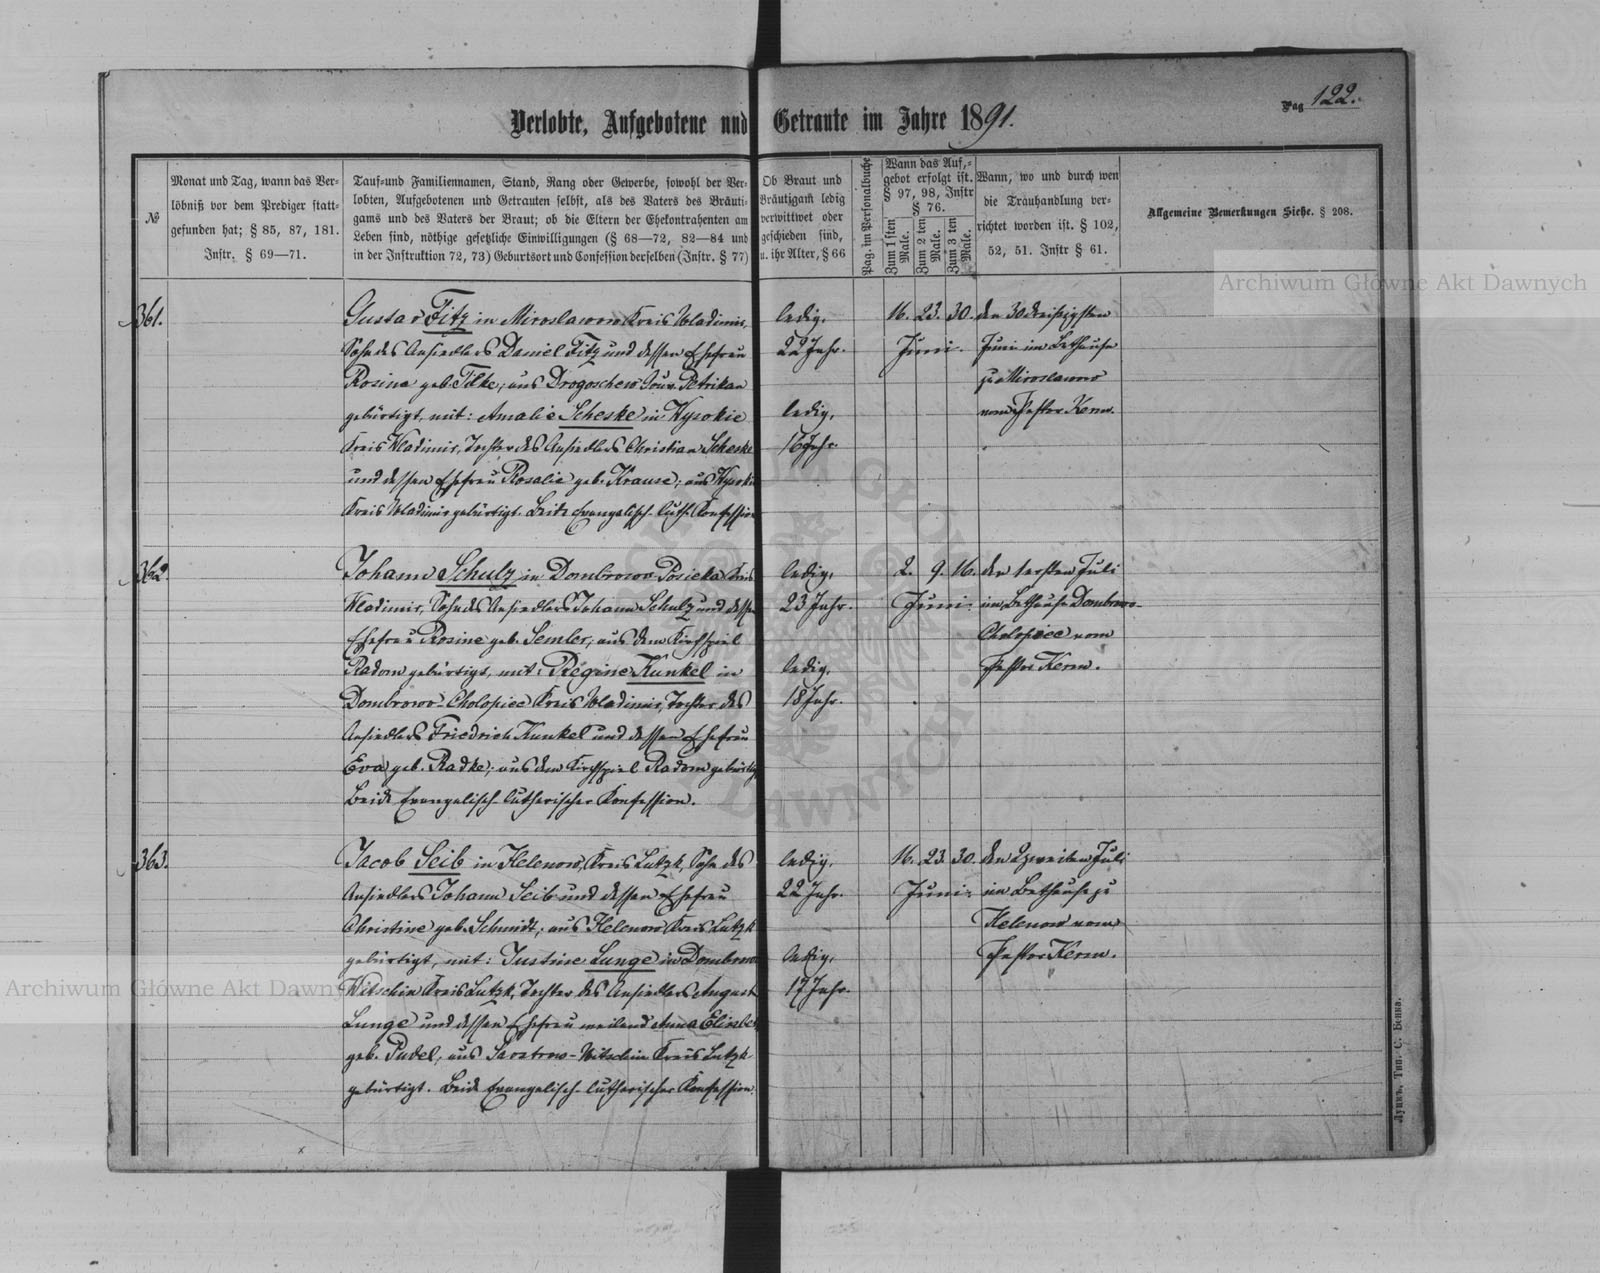 Pag 122.
Verlobte, Aufgebotene und Getraute im Jahre 1891.
№
Monat und Tag, wann das Ver-
löbniß vor dem Prediger statt-
gefunden hat; § 85, 87, 181.
Instr. § 69—71.
Tauf- und Familiennamen, Stand, Rang oder Gewerbe, sowohl der Ver-
lobten, Aufgebotenen und Getrauten selbst, als des Vaters des Bräuti-
gams und des Vaters der Braut; ob die Eltern der Ehekontrahenten am
Leben sind, nöthige gesetzliche Einwilligungen (§ 68—72, 82—84 und
in der Instruktion 72, 73) Geburtsort und Confession derselben (Instr. § 77)
Ob Braut und
Bräutigam ledig
verwittwet oder
geschieden sind,
u. ihr Alter, § 66
Pag. im Personalbuche
Wann das Auf-
gebot erfolgt ist.
§ 97, 98, Instr
§ 76.
Zum 1 sten
Male.
Zum 2 ten
Male.
Zum 3 ten
Male.
Wann, wo und durch wen
die Trauhandlung ver-
richtet worden ist. § 102,
52, 51. Instr § 61.
Allgemeine Bemerkungen Siehe. § 208.
361.
Gustav Fitz in Miroslawow Kreis Wladimir,
Sohn des Ansiedlers Daniel Fitz und dessen Ehefrau
Rosine geb. Tilke; aus Drogoschew Gouv. Petrikau
gebürtigt, mit: Amalie Scheske in Wysokie
Kreis Wladimir, Tochter des Ansiedlers Christian Scheske
und dessen Ehefrau Rosalie geb. Krause; aus Wysokie
Kreis Wladimir gebürtigt. Beide Evangelisch-Luth. Konfession
ledig.
22 Jahr.
ledig.
16 Jahr.
16. 23. 30.
Juni.
den 30 dreißigsten
Juni im Bethause
zu Miroslawow
vom Pastor Kern.
362.
Johann Schulz in Dombrowo-Posieka Kreis
Wladimir, Sohn des Ansiedlers Johann Schulz und dessen
Ehefrau Rosine geb. Semler; aus dem Kirchspiel
Radom gebürtigt, mit: Regine Kunkel in
Dombrowo-Cholopiec Kreis Wladimir, Tochter des
Ansiedlers Friedrich Kunkel und dessen Ehefrau
Eva geb. Radke; aus dem Kirchspiel Radom gebürtigt
Beide Evangelisch-lutherischer Konfession.
ledig.
23 Jahr.
ledig.
18 Jahr.
2. 9. 16.
Juni.
den 1 ersten Juli
im Bethause Dombrowo-
Cholopiec vom
Pastor Kern.
363.
Jacob Seib in Helenow, Kreis Lutzk, Sohn des
Ansiedlers Johann Seib und dessen Ehefrau
Christine geb. Schmidt; aus Helenow Kreis Lutzk
gebürtigt, mit: Justine Lange in Dombrowo
Witschin Kreis Lutzk, Tochter des Ansiedlers August
Lange und dessen Ehefrau weiland Anna Elisabet
geb. Pudel, aus -Witschin Kreis Lutzk
gebürtigt. Beide Evangelisch-lutherischer Konfession.
ledig.
22 Jahr.
ledig.
17 Jahr.
16. 23. 30.
Juni.
den 2 zweiten Juli
im Bethause zu
Helenow vom
Pastor Kern.
Луцкъ, Тип. С. Бенка.
Archiwum Główne Akt Dawnych
Archiwum Główne Akt Dawnych